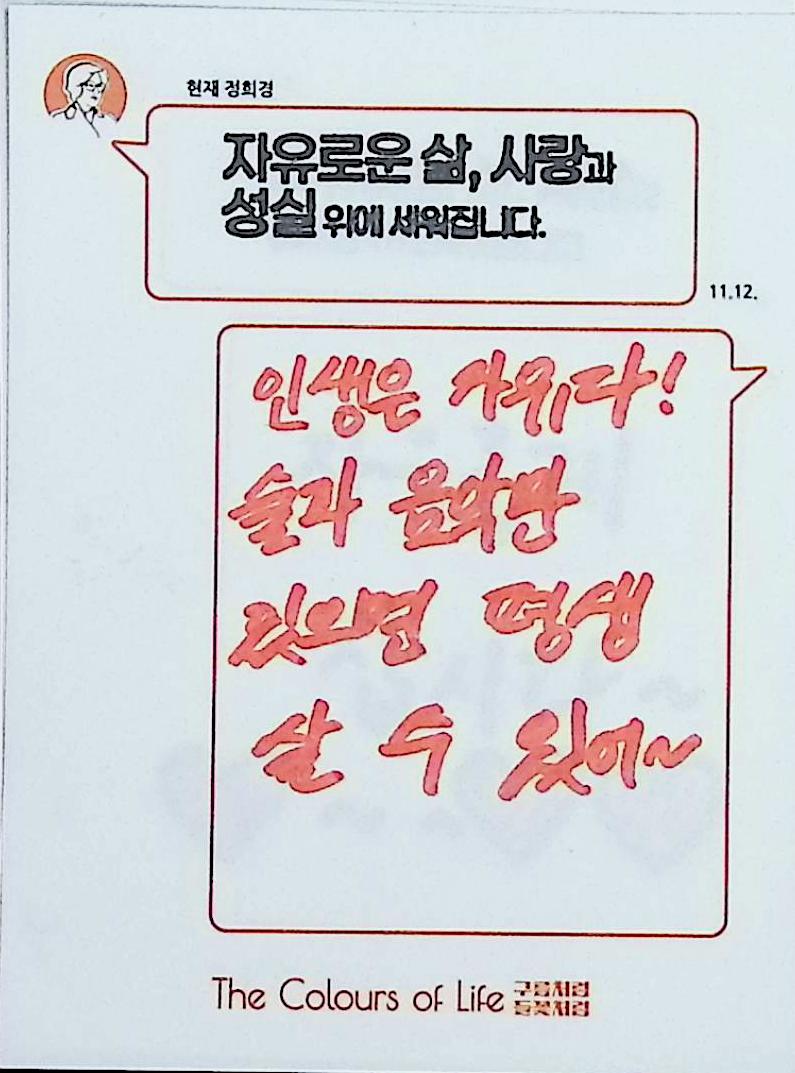 현재 정희경
자유로운 삶, 사랑과
성실 위에 세워집니다.
11.12.
인생은 자유다!
술과 음악만
있으면 평생
살 수 있어~
The Colours of Life 구름처럼
들꽃처럼